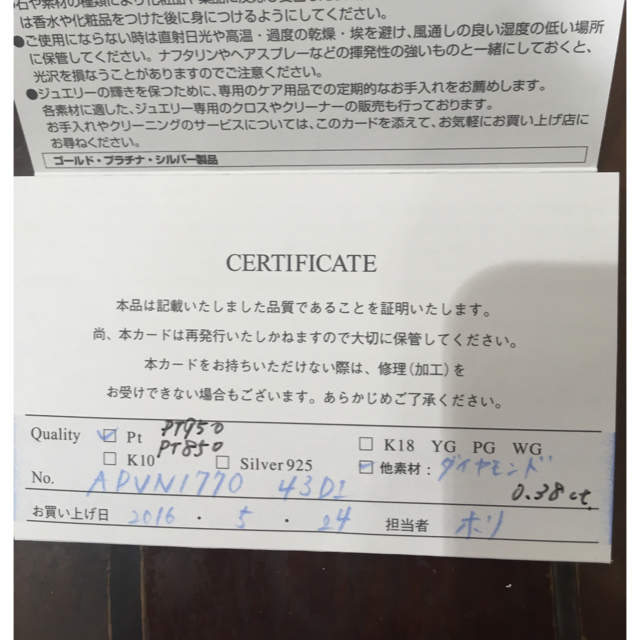 は香水や化粧品をつけた後に身につけるようにしてください。
●ご使用にならない時は直射日光や高温・過度の乾燥・埃を避け、風通しの良い湿度の低い場所
に保管してください。ナフタリンやヘアスプレーなどの揮発性の強いものと一緒にしておくと、
光沢を損なうことがありますのでご注意ください。
●ジュエリーの輝きを保つために、専用のケア用品での定期的なお手入れをお薦めします。
各素材に適した、ジュエリー専用のクロスやクリーナーの販売も行っております。
お手入れやクリーニングのサービスについては、このカードを添えて、お気軽にお買い上げ店に
お尋ねください。
ゴールド・プラチナ・シルバー製品
CERTIFICATE
本品は記載いたしました品質であることを証明いたします。
尚、本カードは再発行いたしかねますので大切に保管してください。
本カードをお持ちいただけない際は、修理(加工)を
お受けできない場合もございます。あらかじめご了承ください。
Quality ☑ Pt PT950 PT850 □ K18 YG PG WG
□ K10 □ Silver 925 ☑ 他素材:ダイヤモンド
No. APVN1770 43DI 0.38ct.
お買い上げ日 2016・5・24 担当者 ホリ